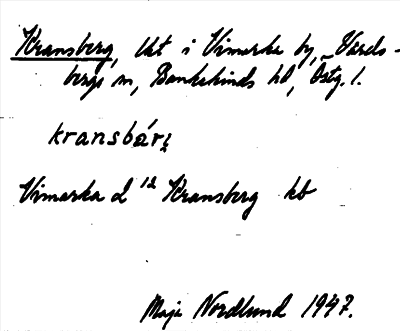 Kransberg, lht i Vimarka by, Vårds-
bergs sn, Bankekinds hd, Östg. l.
kransbárį
Vimarka d 12 Kransberg kb
Maja Nordlund 1947.